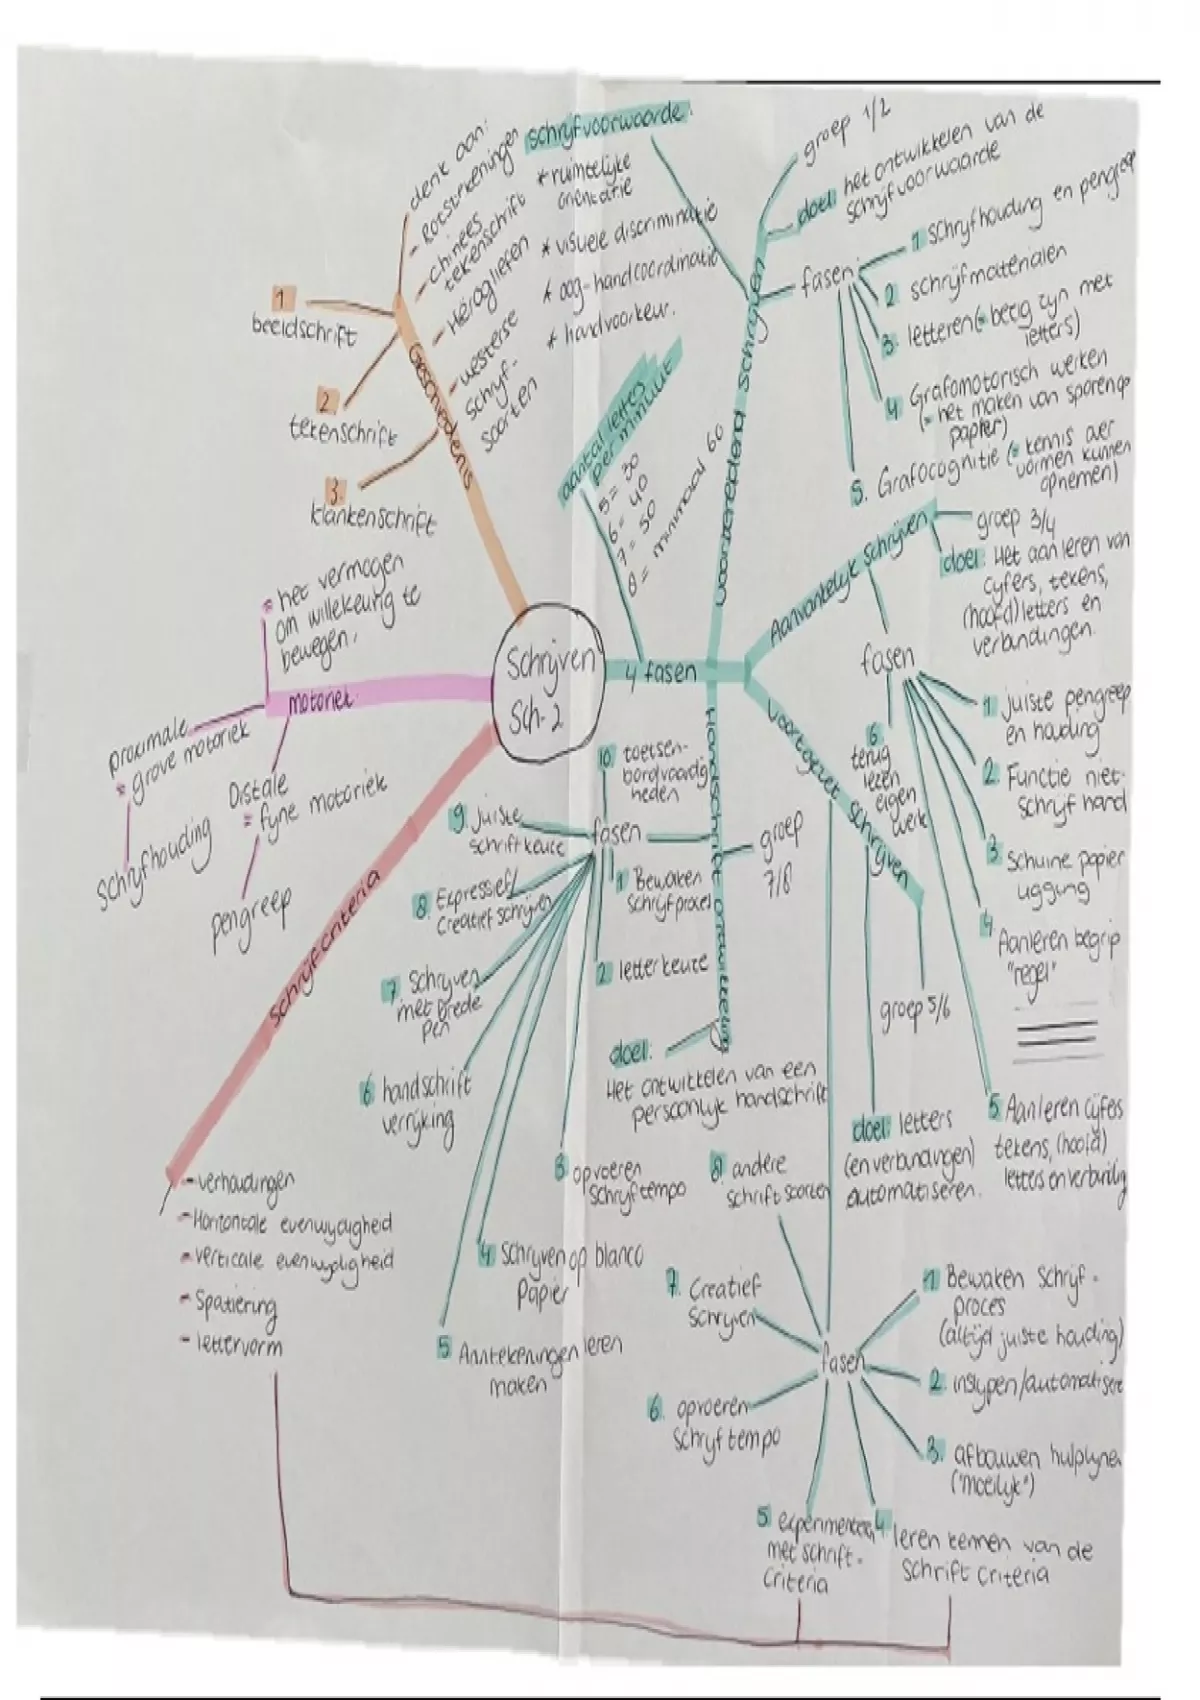 Schrijven
Sch. 2
Geschiedenis
denk aan:
- Rotstekeningen
- chinees
tekenschrift
- Hërogliefen
- westerse
schrijf-
soorten
1
beeldschrift
2
tekenschrift
3.
klankenschrift
motoriek
= het vermogen
om willekeurig te
bewegen.
proximale
= grove motoriek
schrijfhouding
Distale
= fijne motoriek
pengreep
schrijfcriteria
- verhoudingen
- Horizontale evenwijdigheid
- verticale evenwijdigheid
- Spatiëring
- lettervorm
4 fasen
aantal letters
per minuut
5 = 30
6 = 40
7 = 50
8 = minimaal 60
voorbereidend schrijven
schrijfvoorwaarde:
* ruimtelijke
oriëntatie
* visuele discriminatie
* oog-handcoördinatie
* handvoorkeur.
groep 1/2
doel: het ontwikkelen van de
schrijfvoorwaarde
fasen:
1 schrijfhouding en pengreep
2 schrijfmaterialen
3. letteren (= bezig zijn met
letters)
4 Grafomotorisch werken
(= het maken van sporen op
papier)
5. Grafocognitie (= kennis over
vormen kunnen
opnemen)
Aanvankelijk schrijven
groep 3/4
doel: Het aanleren van
cijfers, tekens,
(hoofd)letters en
verbindingen.
fasen
1 juiste pengreep
en houding
2. Functie niet-
schrijf hand
3 Schuine papier
ligging
4 Aanleren begrip
"regel"
5 Aanleren cijfers
tekens, (hoofd)
letters en verbinding
6.
terug
lezen
eigen
werk
voortgezet schrijven
groep 5/6
doel: letters
(en verbindingen)
automatiseren.
fasen
1 Bewaken schrijf-
proces
(altijd juiste houding)
2. inslijpen/automatisere
3. afbouwen hulplijne
("moeilijk")
4 leren kennen van de
schrift criteria
5 experimenteren
met schrift-
criteria
6. opvoeren
schrijftempo
7. Creatief
schrijven
8 andere
schriftsoorten
Handschrift ontwikkeling
groep
7/8
doel:
Het ontwikkelen van een
persoonlijk handschrift
fasen
1 Bewaken
schrijfproces
2 letterkeuze
3 opvoeren
schrijftempo
4 schrijven op blanco
papier
5 Aantekeningen leren
maken
6 handschrift
verrijking
7 Schrijven
met brede
pen
8. Expressief/
Creatief schrijven
9. juiste
schriftkeuze
10. toetsen-
bordvaardig
heden